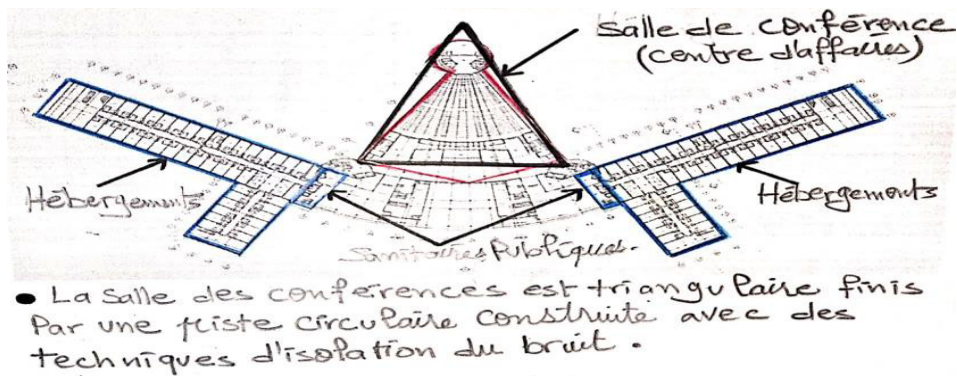 Salle de conférence
(centre d'affaires)
Hébergements
Hébergements
Sanitaires Publiques.
• La Salle des conférences est triangulaire finis
Par une piste circulaire construite avec des
techniques d'isolation du bruit.